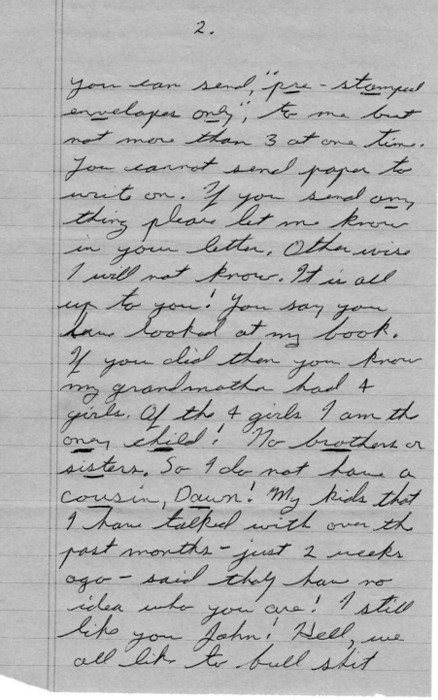 2.
you can send, "pre-stamped
envelopes only", to me but
not more than 3 at one time.
You cannot send paper to
write on. If you send any
thing please let me know
in your letter. Other wise
I will not know. It is all
up to you! You say you
have looked at my book.
If you did then you know
my grandmother had 4
girls. Of the 4 girls I am th
only child! No brothers or
sisters. So I do not have a
cousin, Dawn! My kids that
I have talked with over th
past months - just 2 weeks
ago - said they have no
idea who you are! I still
like you John! Hell, we
all like to bull shit